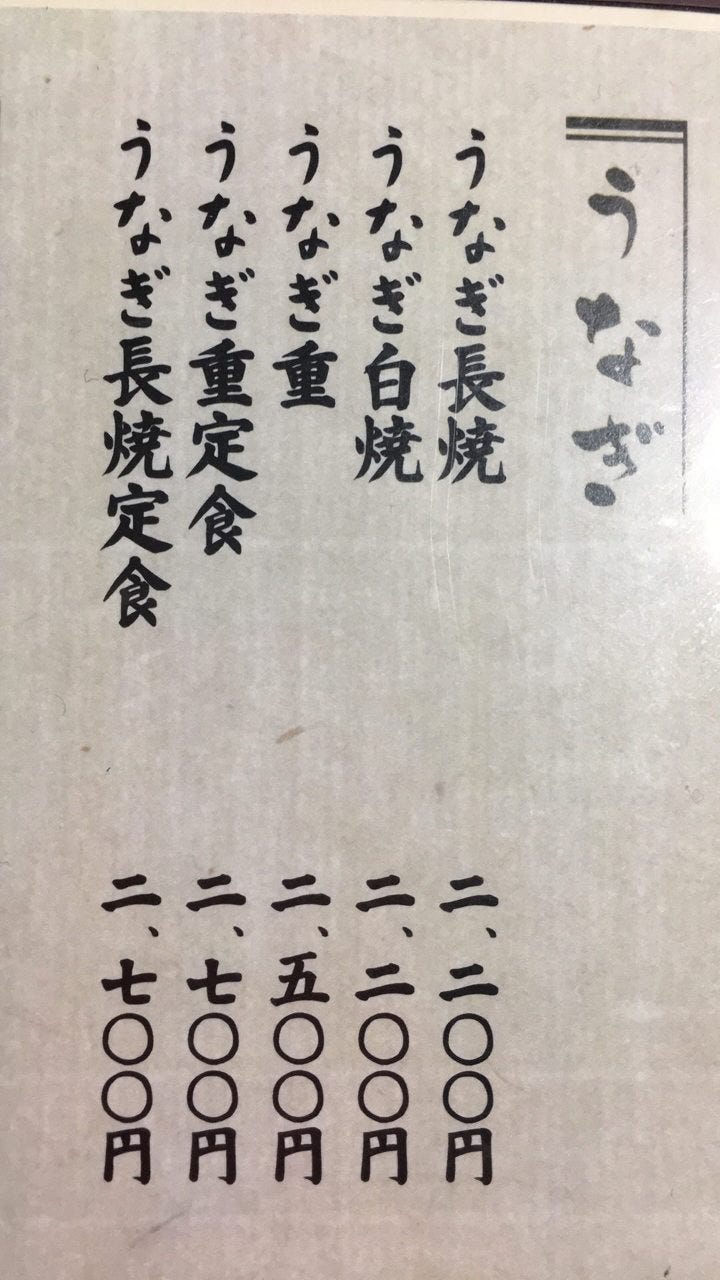 うなぎ
うなぎ長焼 二、二〇〇円
うなぎ白焼 二、二〇〇円
うなぎ重 二、五〇〇円
うなぎ重定食 二、七〇〇円
うなぎ長焼定食 二、七〇〇円